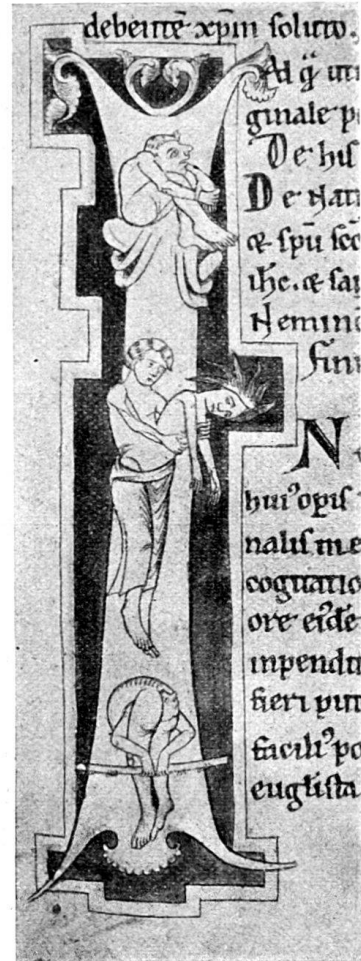 debentē xp̄m soluto.
Ad q̄ uti
ginale p
De his
De Nati
& spū sc̄
ihc. & sal
Nemini
fini
N
hui᾽ opis
nalis me
cogitatio
ore eidē
inpendi
fieri put
facili᾽ po
euglista